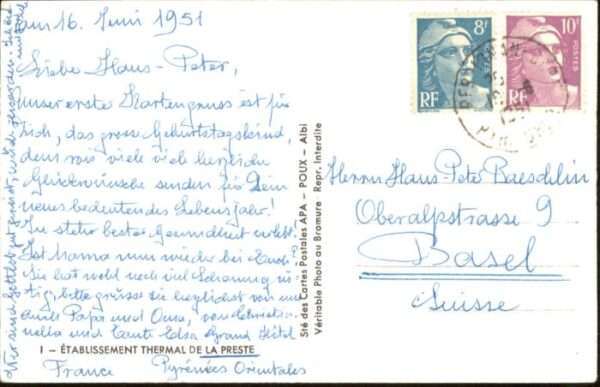 am 16. Juni 1951
Liebe Hans-Peter,
unser erste Kartengruss ist für
Dich, das grosse Geburtstagskind,
dem wir viele viele herzliche
Glückwünsche senden für Dein
neues bedeutendes Lebensjahr!
In steter bester Gesundheit
Ist Mama nun wieder bei Euch?
Sie hat wohl noch viel Schonung nö-
tig, bitte grüsse sie herzlichst von uns
Papa und Oma, von
und Tante Edsa Grand Hôtel
I - ÉTABLISSEMENT THERMAL DE LA PRESTE
France Pyrénées Orientales
Wir sind Gottlob gut gereist
Sté des Cartes Postales APA - POUX - Albi
Véritable Photo au Bromure - Repr. Interdite
8F
RF
10F
POSTES
RF
Herrn Hans-Peter Baeschlin
Oberalpstrasse 9
Basel
Suisse